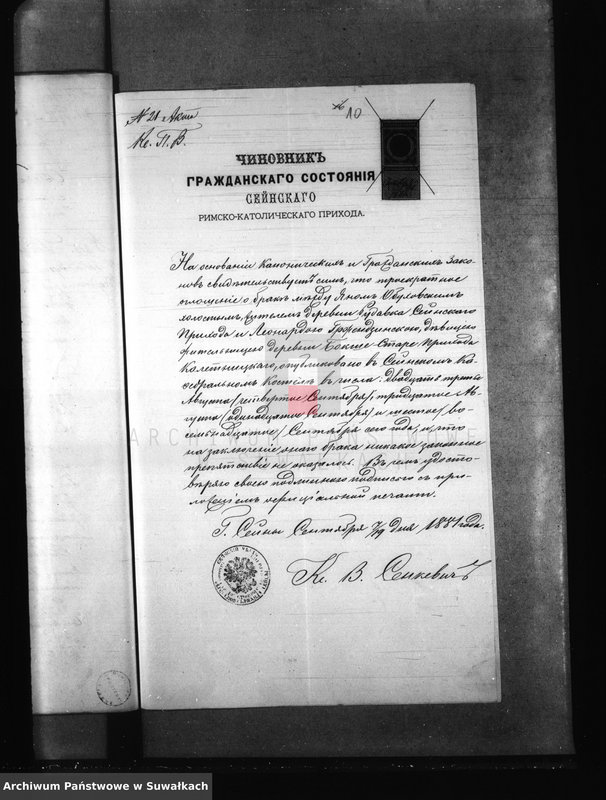 № 21 Акта
Кс. П. В.
16
10
ЧИНОВНИКЪ
ГРАЖДАНСКАГО СОСТОЯНІЯ
СЕЙНСКАГО
РИМСКО-КАТОЛИЧЕСКАГО ПРИХОДА.
На основаніи Каноническихъ и Гражданскихъ Зако-
новъ свидѣтельствуетъ симъ, что троекратное
оглашеніе о бракѣ между Яномъ Обуховскимъ
холостымъ, жителемъ деревни Рудавка Сейнского
Прихода и Леонардою дѣвицею
жительницею деревни Бокше-Старе Прихода
Калетницкаго, опубликовано въ Сейнскомъ Ка-
ѳедральномъ Костелѣ въ числа: двадцать третье
Августа /четвертое Сентября/, тридцатое Ав-
густа /одинадцатое Сентября/ и шестое /во-
семьнадцатое/ Сентября сего года, и что
на заключеніе этого брака никако законное
препятствіе не оказалось. Въ чемъ удосто-
вѣряю своею подлинною подписью съ при-
ложеніемъ оффиціальной печати.
Г. Сейны Сентября 7/19 дня 1881 года.
Кс. В. Сенкевичъ
ARCHIWUM PAŃSTWOWE
Archiwum Państwowe w Suwałkach